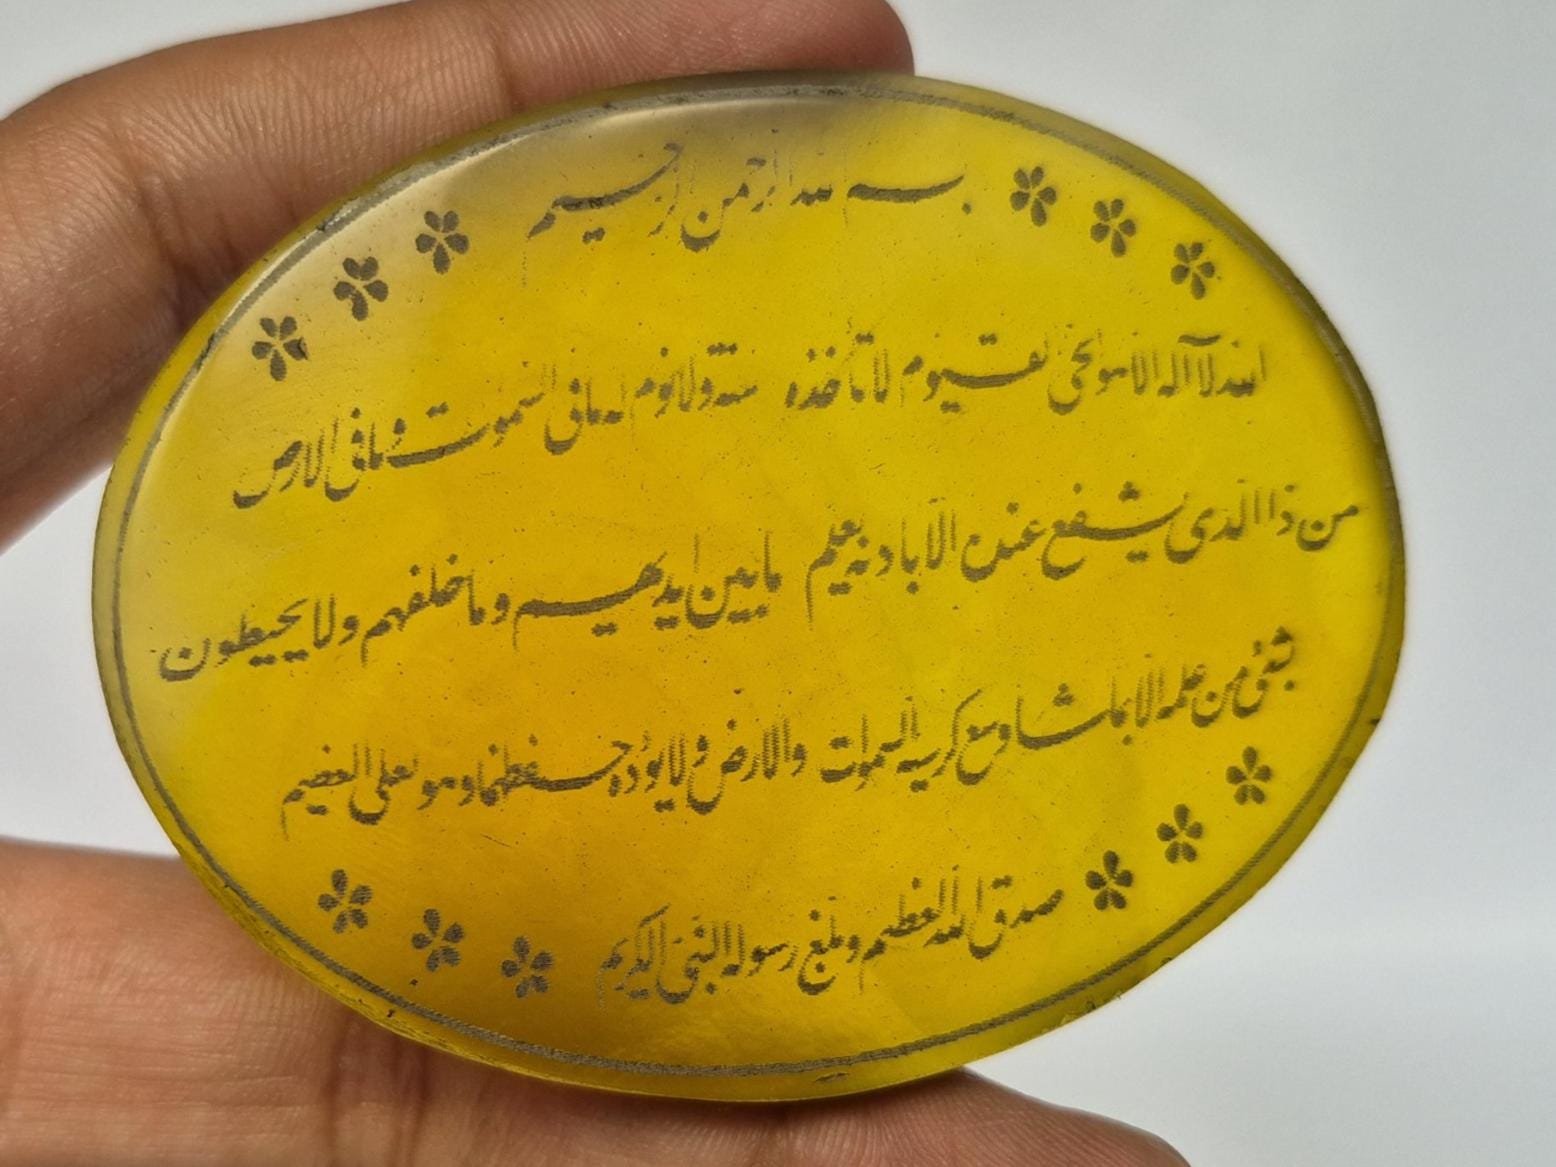 بسم الله الرحمن الرحيم
الله لا آله الا هو الحي القيوم لا تأخذه سنة ولا نوم له ما في السموت وما في الارض
من ذا الذي يشفع عنده الا باذنه يعلم ما بين ايديهم وما خلفهم ولا يحيطون
بشئ من علمه الا بما شاء وسع كرسيه السموات والارض ولا يؤده حفظهما وهو العلي العظيم
صدق الله العظيم وبلغ رسوله النبي الكريم